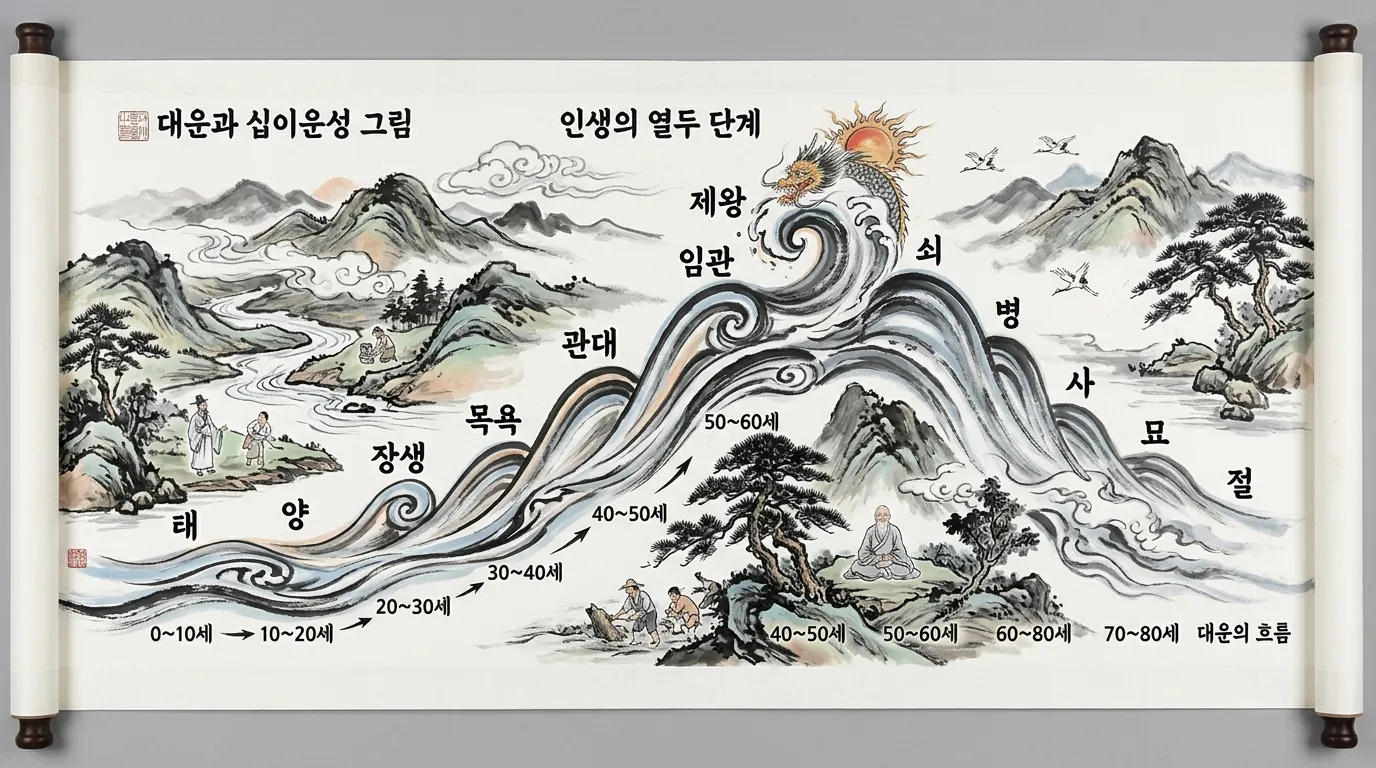 대운과 십이운성 그림
인생의 열두 단계
태
양
장생
목욕
관대
임관
제왕
쇠
병
사
묘
절
0~10세
10~20세
20~30세
30~40세
40~50세
50~60세
40~50세
50~60세
60~80세
70~80세
대운의 흐름